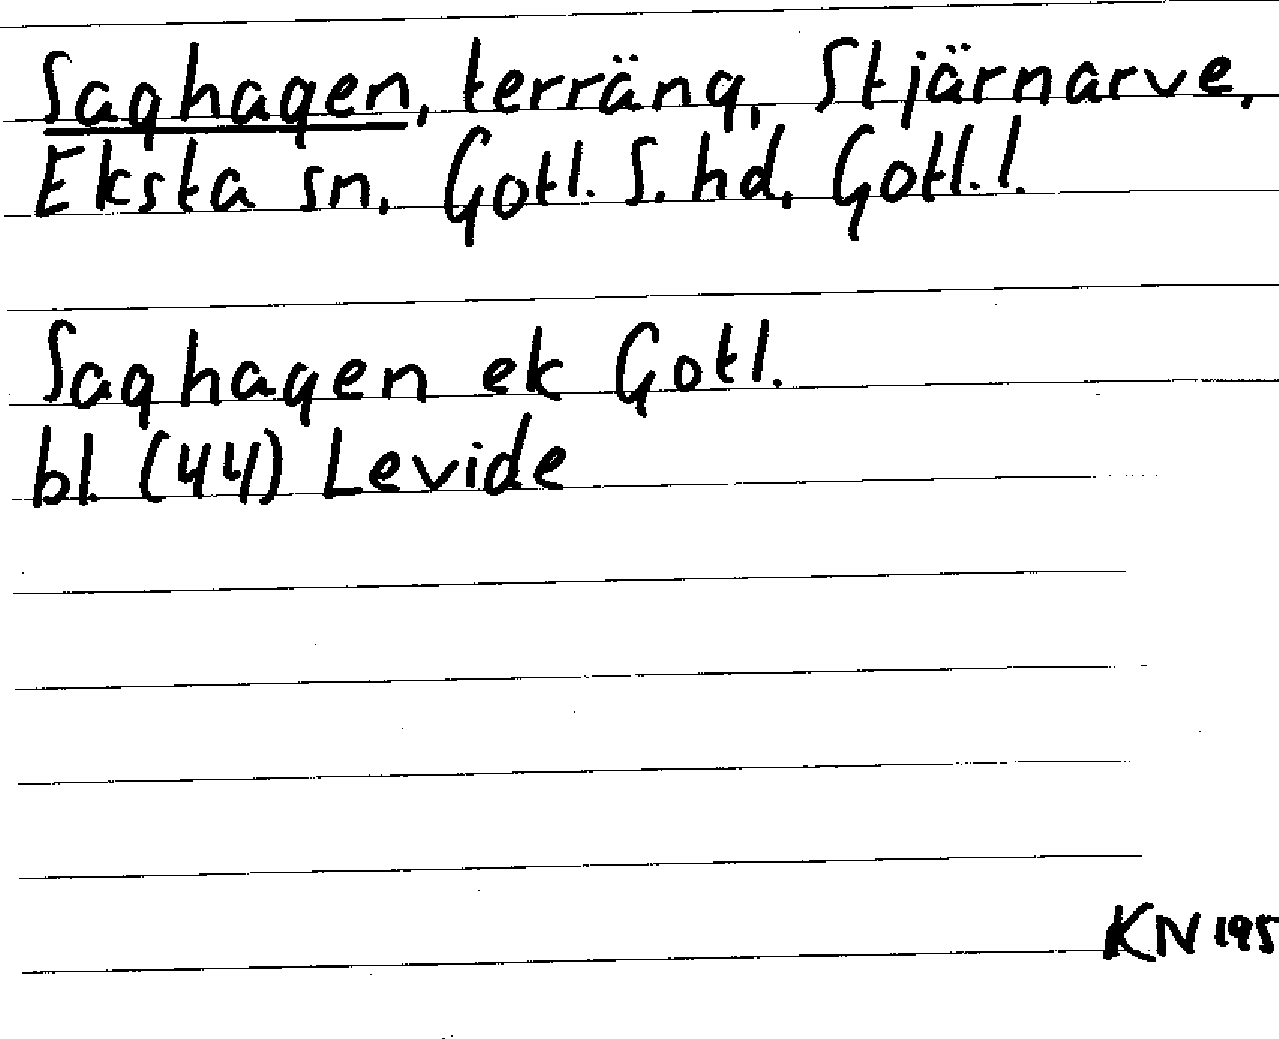 Saghagen, terräng, Stjärnarve,
Eksta sn, Gotl. S. hd, Gotl. l.
Saghagen ek Gotl.
bl. (44) Levide
KN 195